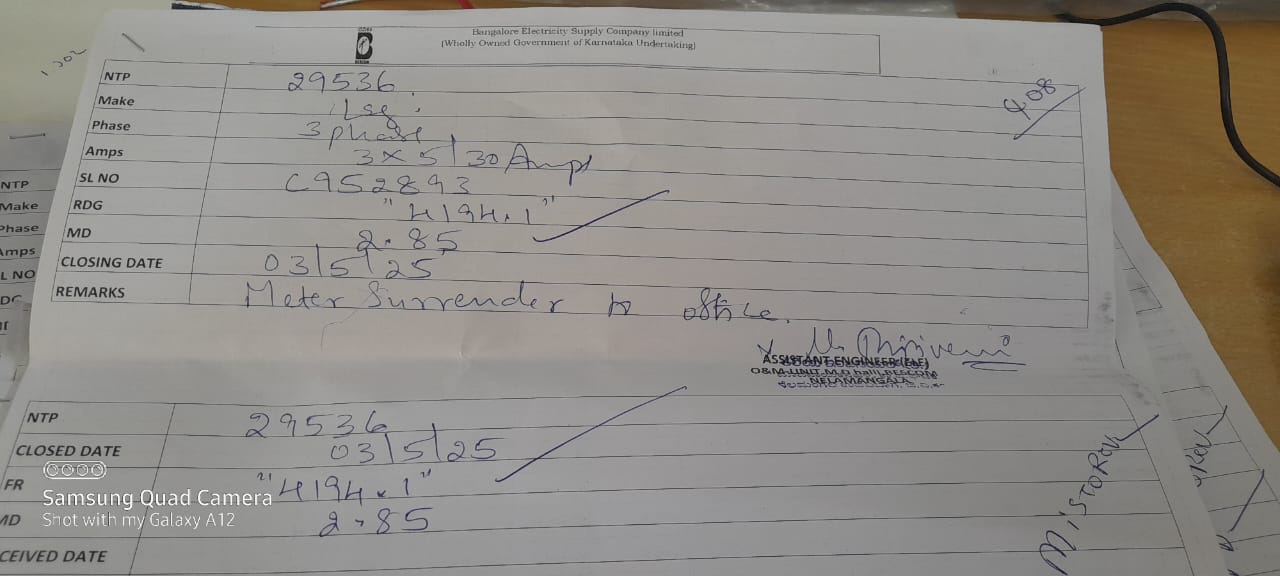 Bangalore Electricity Supply Company limited
(Wholly Owned Government of Karnataka Undertaking)
1302
408
NTP 29536
Make L&g
Phase 3 phase
Amps 3x5/30 Amps
SL NO C952893
RDG "4194.1"
MD 2.85
CLOSING DATE 03/5/25
REMARKS Meter Surrender to office.
ASSISTANT ENGINEER (Ele)
O&M UNIT BESCOM
NELAMANGALA
NTP 29536
CLOSED DATE 03/5/25
FR "4194.1"
MD 2.85
CEIVED DATE
NTP
Make
Phase
Amps
L NO
Samsung Quad Camera
Shot with my Galaxy A12